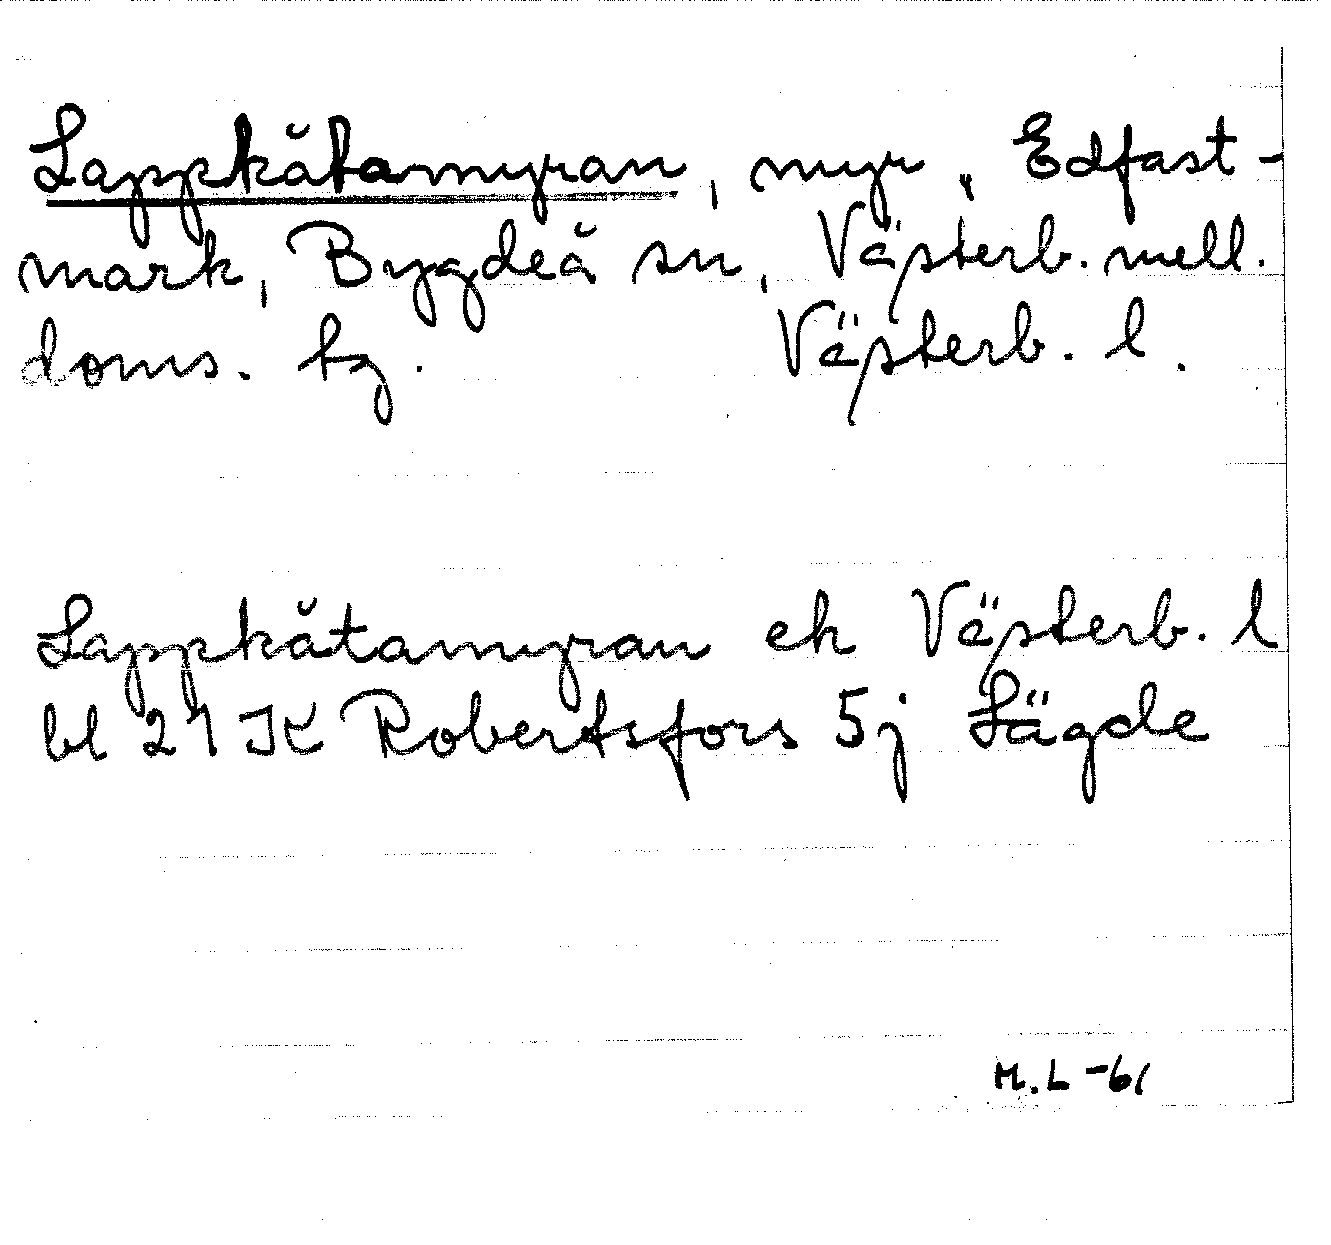 Lappkåtamyran, myr, Edfast-
mark, Bygdeå sn, Västerb. mell.
doms. tg. Västerb. l.
Lappkåtamyran ek Västerb. l
bl 21 K Robertsfors 5j Lägde
M.L -61